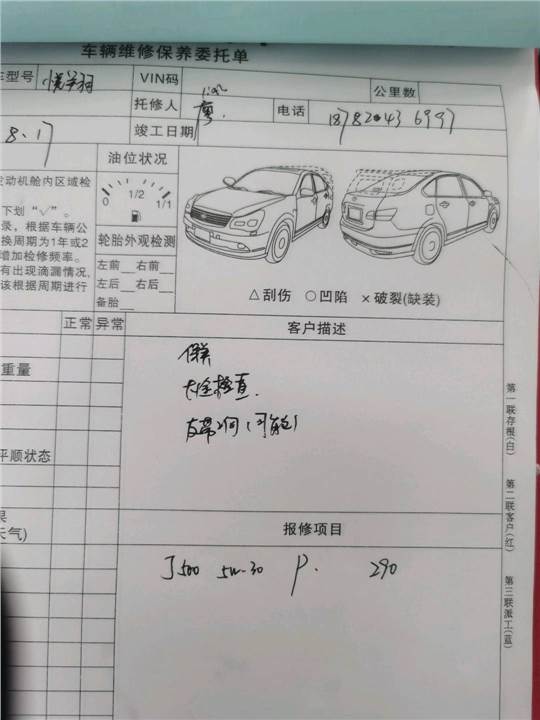 车辆维修保养委托单
车型号
VIN码
公里数
托修人 廖
电话
8.17
竣工日期
发动机舱内区域检
下划“√”。
录，根据车辆公
换周期为1年或2
增加检修频率。
有出现滴漏情况，
该根据周期进行
油位状况
0 1/2 1/1
轮胎外观检测
左前 右前
左后 右后
备胎
△刮伤 ○凹陷 ×破裂(缺装)
正常 异常
重量
平顺状态
果
天气)
客户描述
保养
大全检查.
报修项目
J500 5W-30 P. 290
第一联存根(白)
第二联客户(红)
第三联派工(蓝)